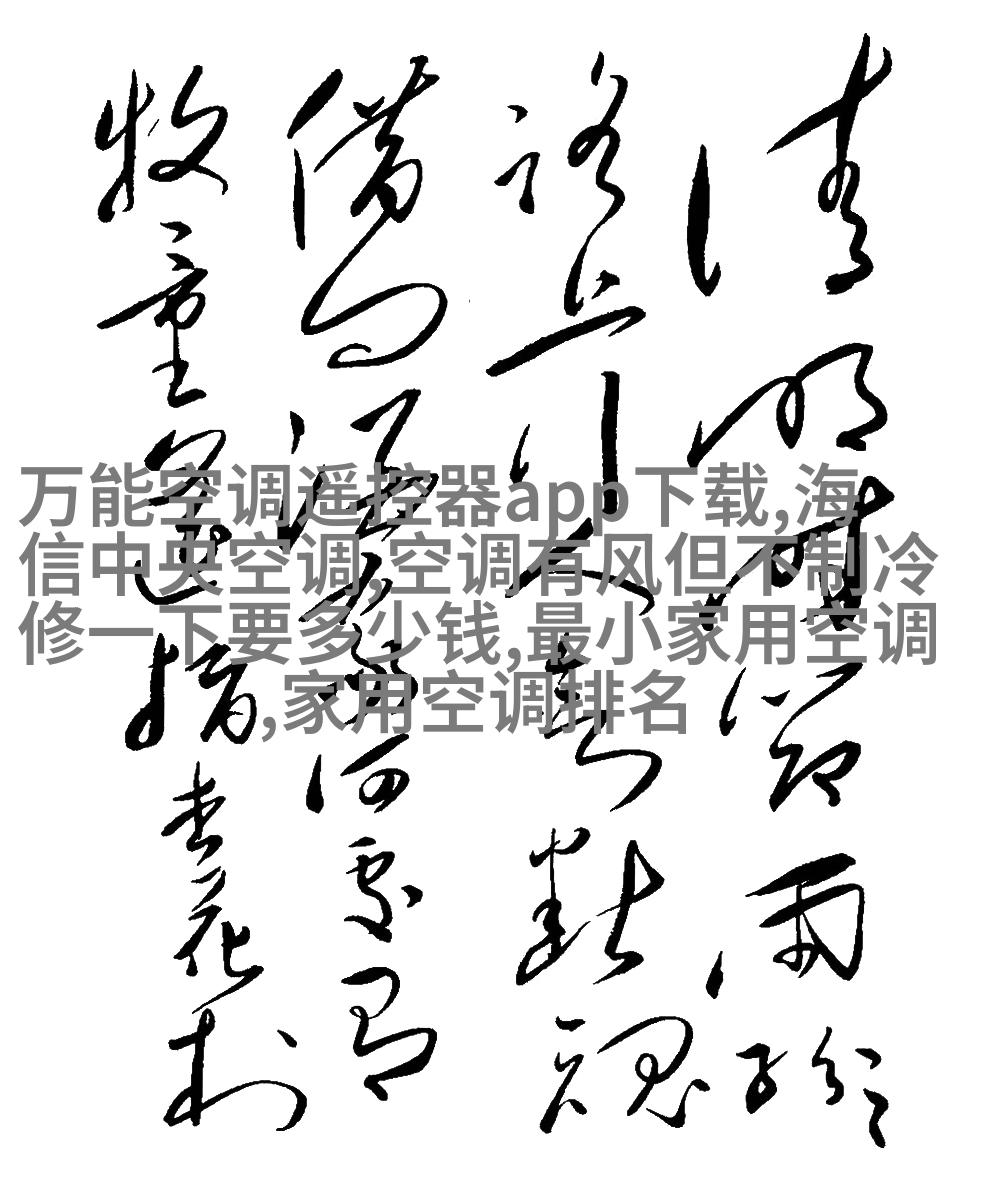 清明時節雨紛々
路上行人欲斷魂
借问酒家何處有
牧童遥指杏花村
万能空调遥控器app下载,海
信中央空调,空调有风但不制冷
修一下要多少钱,最小家用空调
,家用空调排名